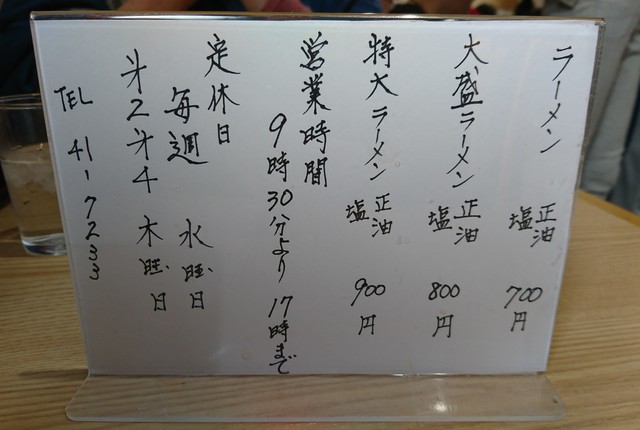 ラーメン 正油 塩 700円
大盛ラーメン 正油 塩 800円
特大ラーメン 正油 塩 900円
営業時間
9時30分より 17時まで
定休日
毎週 水曜日
㐧2㐧4 木曜日
TEL 41-7233